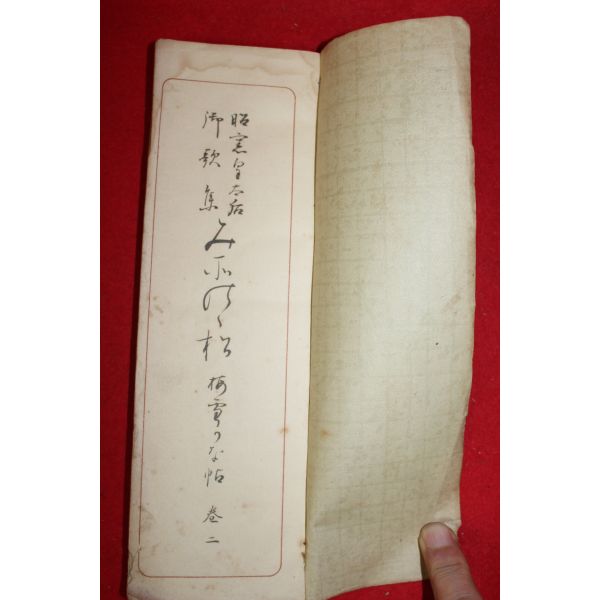 昭憲皇太后
御歌集
みそのゝ松
梅雪かな帖 巻二